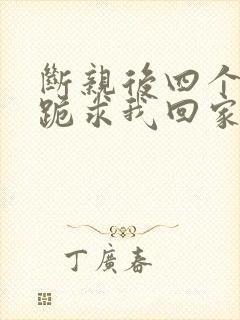 斷親後四个
跪求我回家
丁廣春